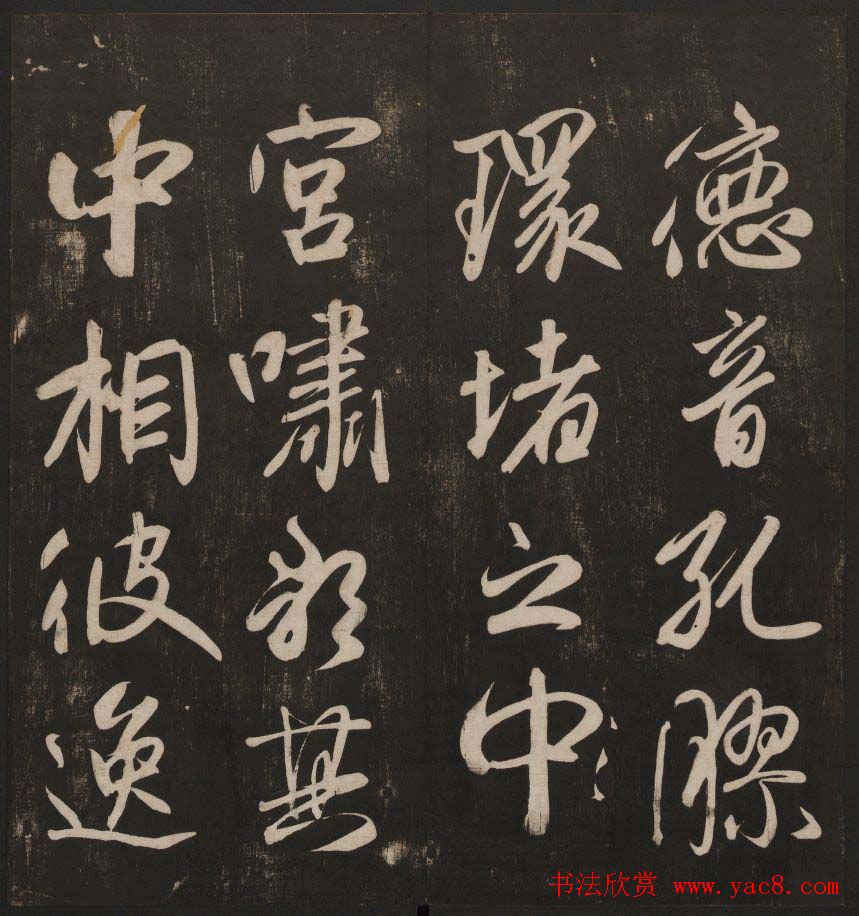 德音孔膠
環堵之中
宮嘯歌其
中相彼逸
书法欣赏 www.yac8.com